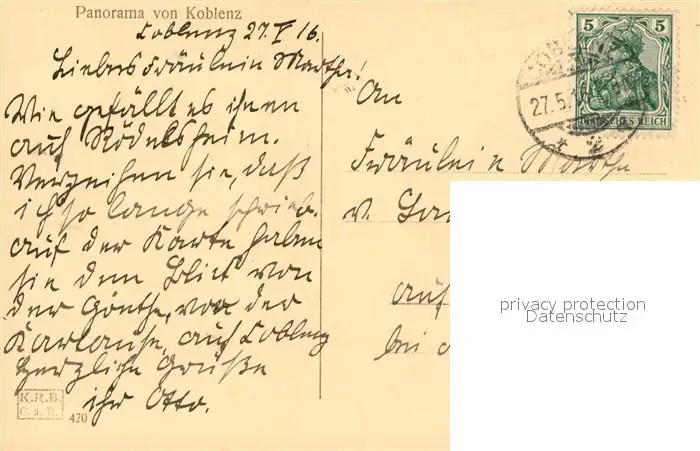 Panorama von Koblenz
Coblenz 27.V 16.
Liebes Fräulein Martha!
Wie gefällt es ihnen
auf Rödelsheim.
Verzeihen sie, daß
ich so lange schrieb.
auf der Karte haben
sie den Blick von
der Goethe, von der
Kartause, auf Coblenz
herzliche Grüße
ihr Otto.
K.R.B.
C. a. R.
420
5 5
DEUTSCHES REICH
27.5.
* 2
An
Fräulein Martha
v.
auf
bei
privacy protection
Datenschutz